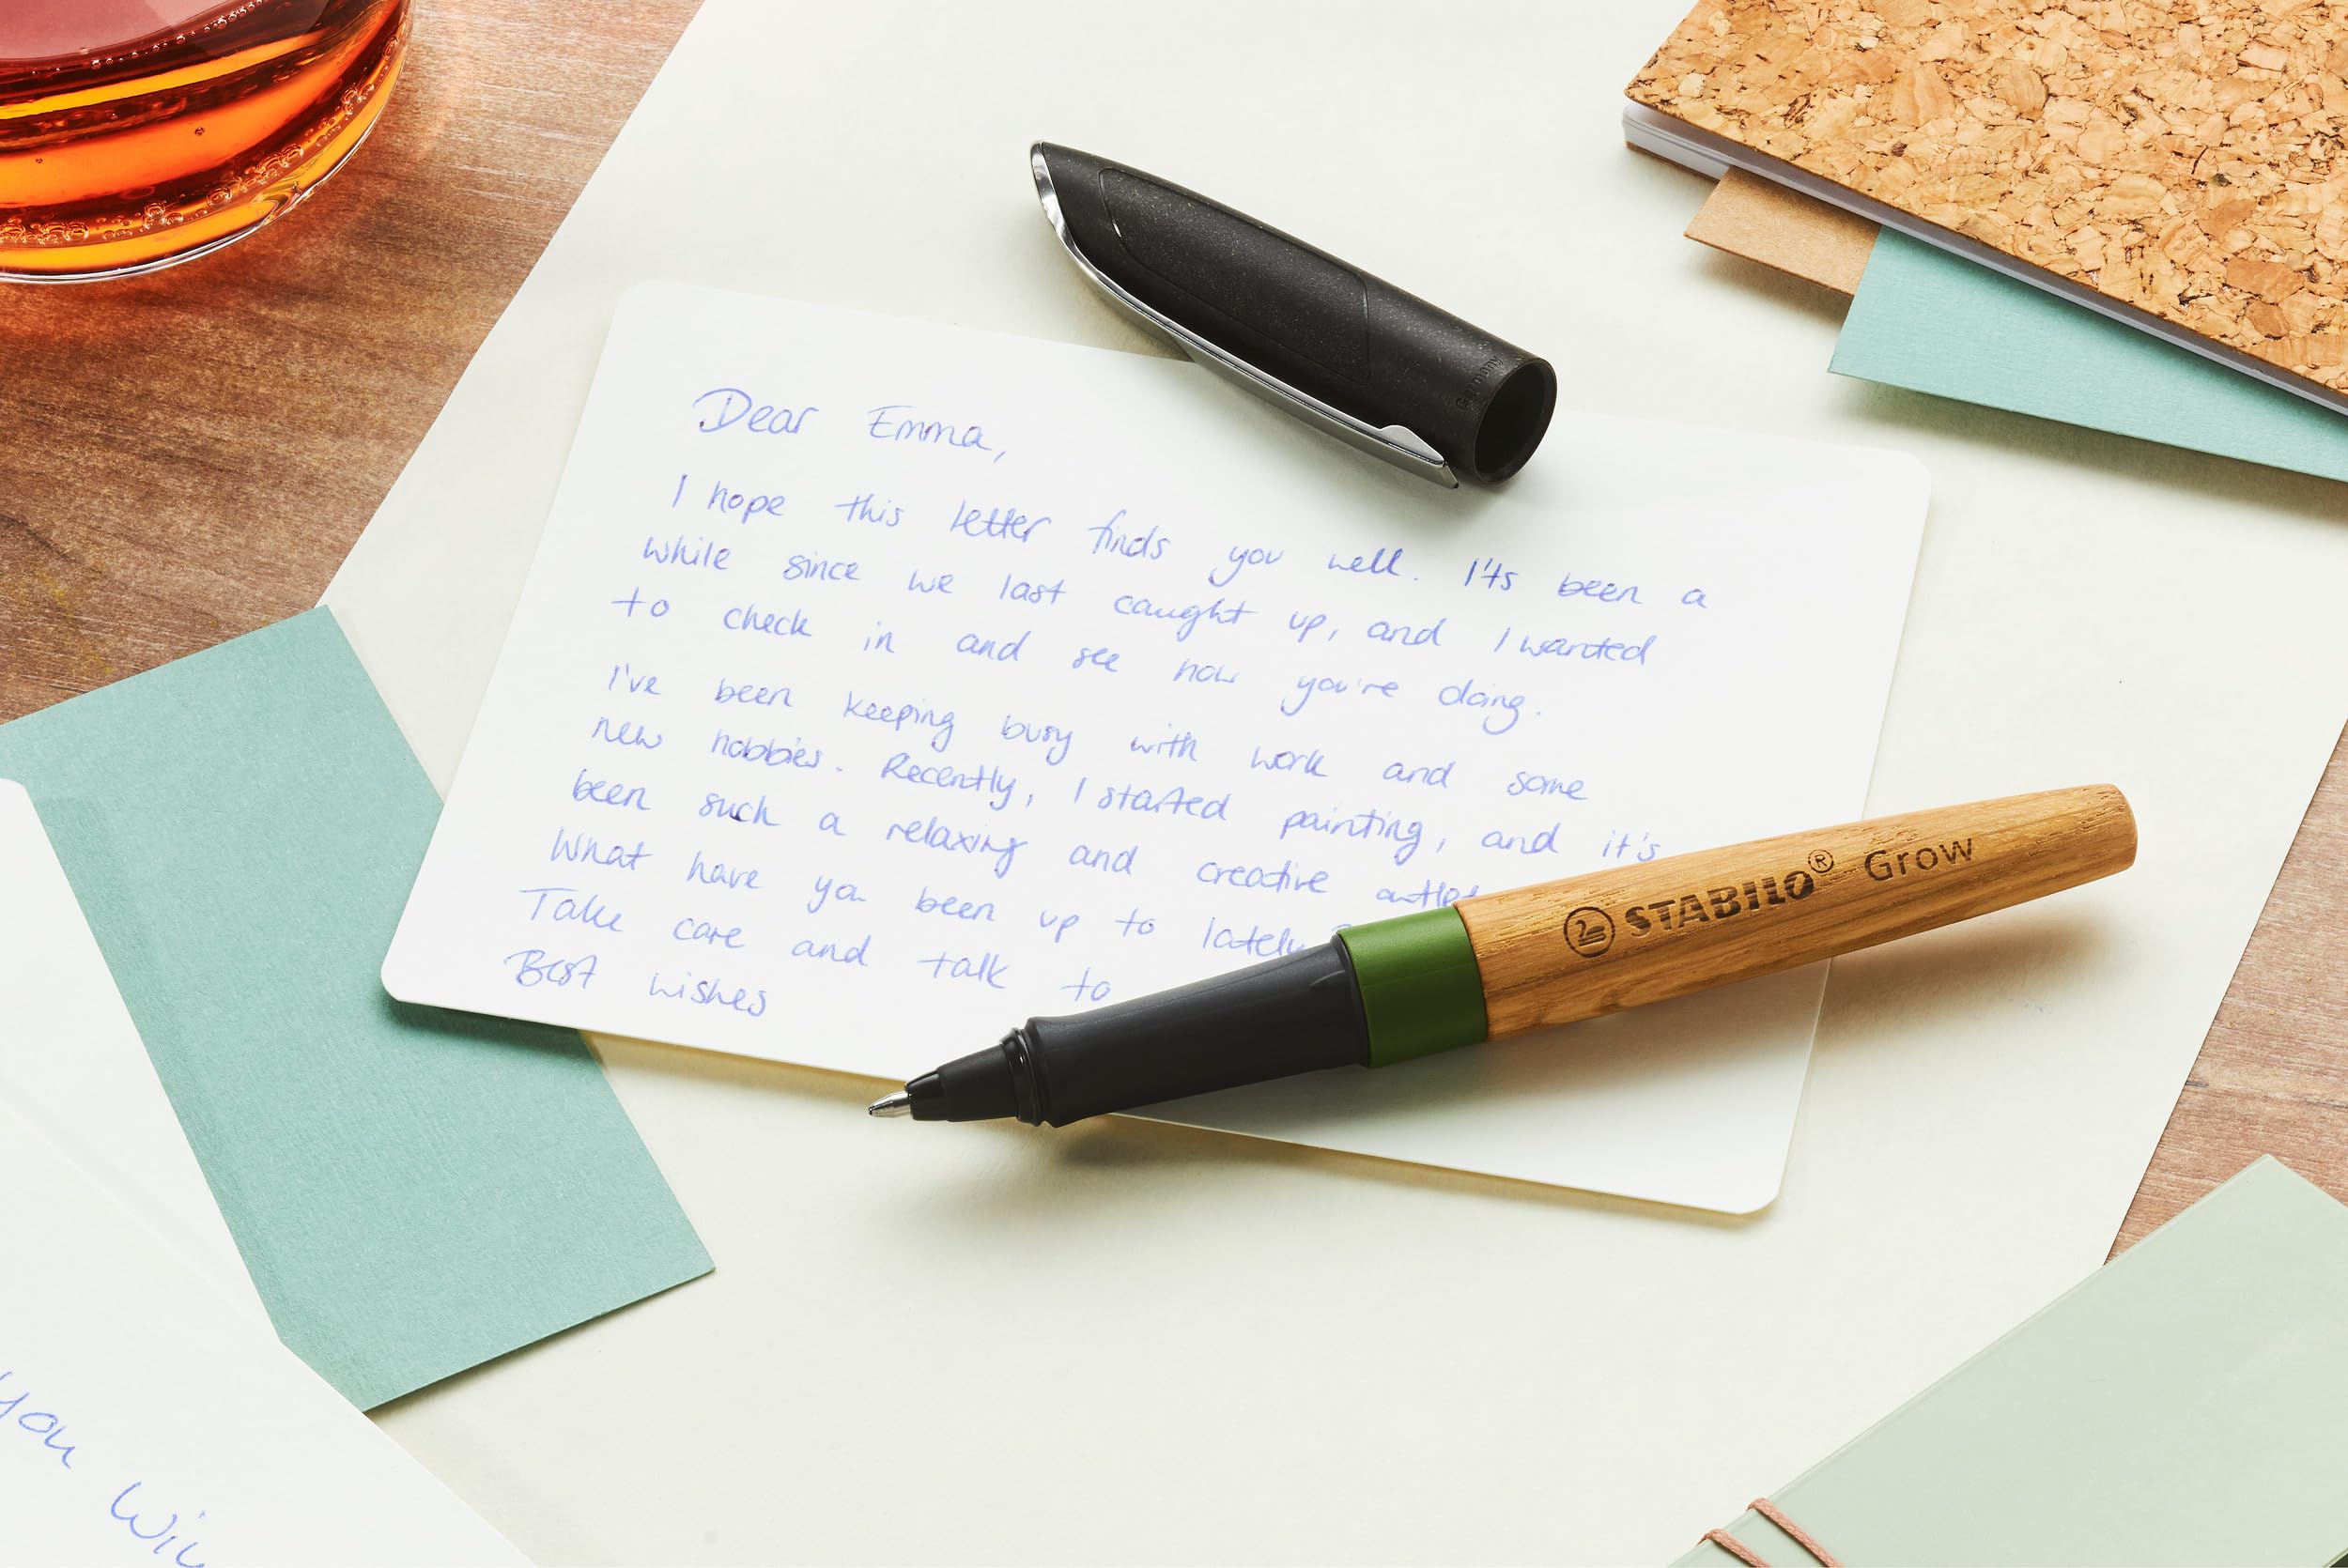 Dear Emma,
I hope this letter finds you well. It's been a
while since we last caught up, and I wanted
to check in and see how you're doing.
I've been keeping busy with work and some
new hobbies. Recently, I started painting, and it's
been such a relaxing and creative
What have you been up to lately
Take care and talk to
Best wishes
STABILO® Grow
Germany
you